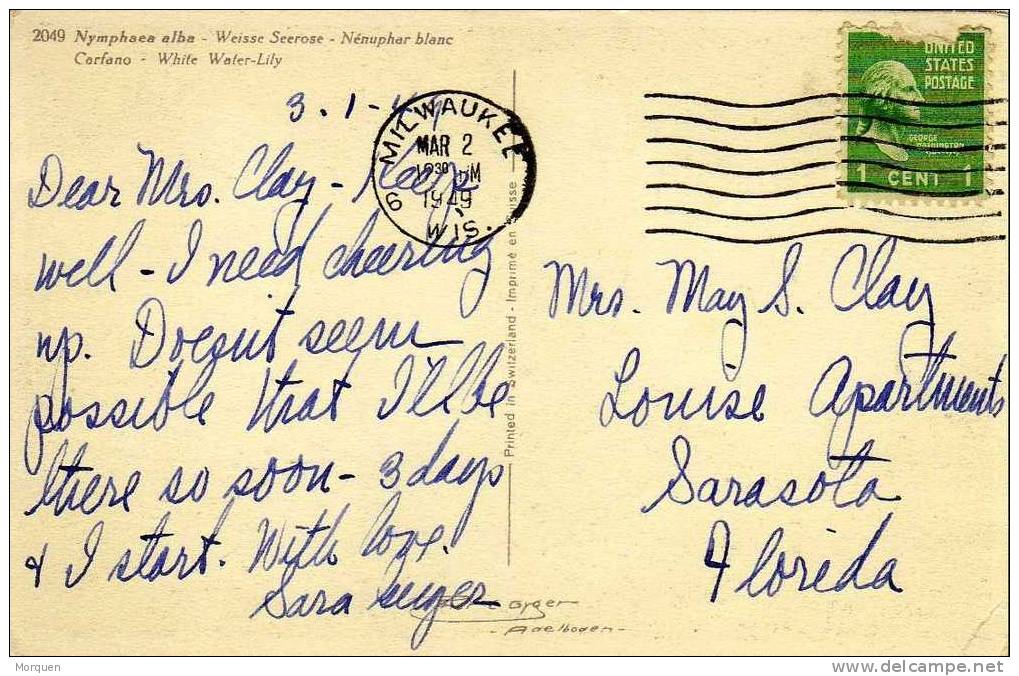 2049 Nymphaea alba - Weisse Seerose - Nénuphar blanc
Carfano - White Water-Lily
3.1-49
Dear Mrs. Clay - Keep
well - I need cheering
up. Doesn't seem
possible that I'll be
there so soon - 3 days
& I start. With love.
Sara
MILWAUKEE
MAR 2
12 30 PM
1949
WIS.
6
Printed in Switzerland - Imprimé en Suisse
UNITED
STATES
POSTAGE
GEORGE
WASHINGTON
1 CENT 1
Mrs. May S. Clay
Louise Apartments
Sarasota
Florida
Gyger
- Adelboden -
Morquen
delcampe.net